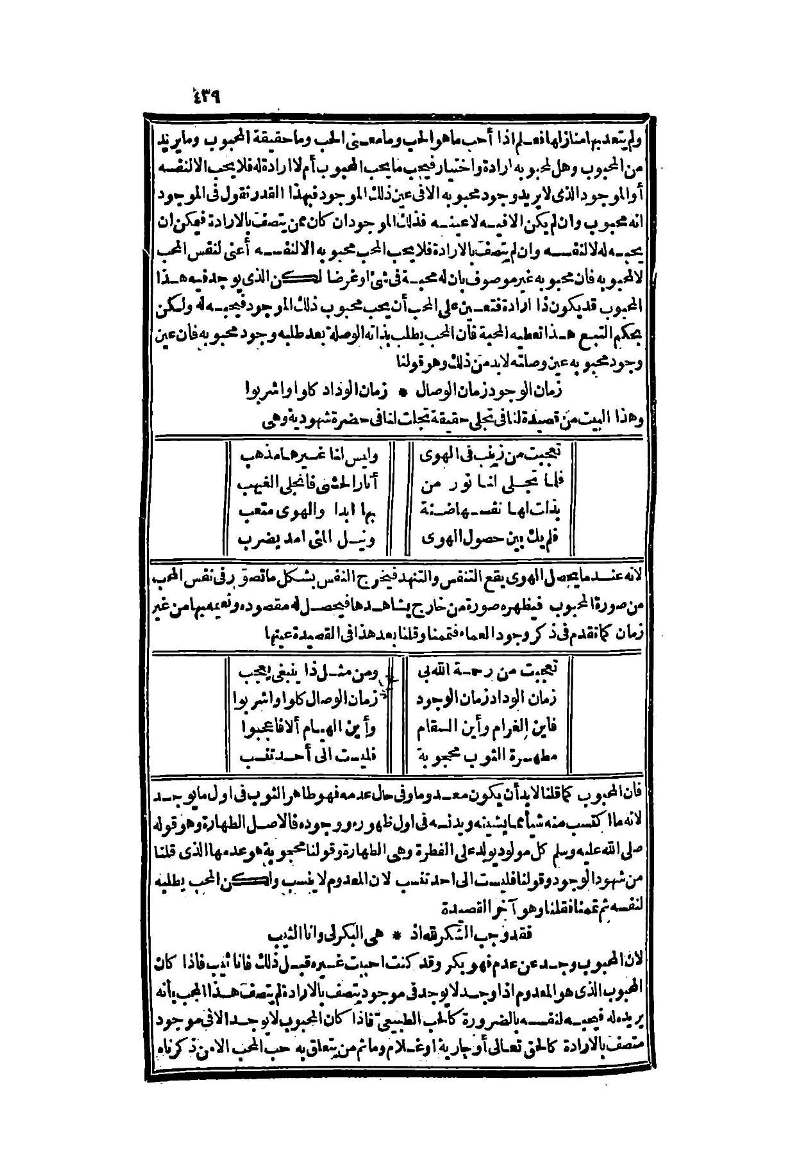 ٤٣٩
ولم يتعد بها منازلها فعلم اذا أحب ما هو الحب وما معنى الحب وما حقيقة المحبوب وما يريد
من المحبوب وهل لمحبوبه ارادة واختيار فيحب ما يحب المحبوب أم لا ارادة له فلا يحب الا لنفسه
أو الموجود الذى لا يريد وجود محبوبه الا فى عين ذلك الموجود فبهذا القدر نقول فى الموجود
انه محبوب وان لم يكن الا فيه لا عينه فذلك الموجود ان كان ممن يتصف بالارادة فيمكن ان
يحبه له لا لنفسه وان لم يتصف بالارادة فلا يحب المحب محبوبه الا لنفسه أعنى لنفس المحب
لا لمحبوبه فان محبوبه غير موصوف بان له محبة فى شئ او غرضا لكن الذى يوجد فيه هذا
المحبوب قد يكون ذا ارادة فتعين على المحب أن يحب محبوب ذلك الموجود فيحبه له ولكن
بحكم التبع هذا تعطيه المحبة فان المحب يطلب بذاته الوصلة بعد طلبه وجود محبوبه فان عين
وجود محبوبه عين وصلته لا بد من ذلك وهو قولنا
زمان الوجود زمان الوصال * زمان الوداد كلوا واشربوا
وهذا البيت من قصيدة لنا فى تجلى حقيقة تجلت لنا فى حضرة شهودية وهى
تعجبت من زينب فى الهوى وليس لنا غيرها مذهب
فلما تجلى لنا نور من أنار الحشى فانجلى الغيهب
بذلت لها نفسها ضنة بها ابدا والهوى متعب
فلم يك بين حصول الهوى ونيل المنى امد يضرب
لانه عند ما يحصل الهوى يقع التنفس والتنهد فيخرج النفس بشكل ما تصور فى نفس المحب
من صورة المحبوب فيظهره صورة من خارج يشاهدها فيحصل له مقصوده ونعيمه بها من غير
زمان كما تقدم فى ذكر وجود العماء فتممنا وقلنا بعد هذا فى القصيدة عينها
تعجبت من رحمة الله بى ومن مثل ذا ينبغى يعجب
زمان الوداد زمان الوجود زمان الوصال كلوا واشربوا
فاين الغرام وأين السقام وأين الهيام ألا فاعجبوا
مطهرة الثوب محجوبة فليست الى أحد تنسب
فان المحبوب كما قلنا لا بد أن يكون معدوما وفى حال عدمه فهو طاهر الثوب فى اول ما يوجد
لانه ما اكتسب منه شيأ مما يشينه ويدنسه فى اول ظهوره ووجوده فالاصل الطهارة وهو قوله
صلى الله عليه وسلم كل مولود يولد على الفطرة وهى الطهارة وقولنا محجوبة هو عدمها الذى قلنا
من شهود الوجود وقولنا فليست الى احد تنسب لان المعدوم لا ينسب ولكن المحب يطلبه
لنفسه ثم تممنا فقلنا وهو آخر القصيدة
فقد وجب الشكر لله اذ * هى البكر لى وانا الثيب
لان المحبوب وجد عن عدم فهو بكر وقد كنت احببت غيره قبل ذلك فانا ثيب فاذا كان
المحبوب الذى هو المعدوم اذا وجد لا يوجد فى موجود يتصف بالارادة لم يتصف هذا المحب بأنه
يريده له فيحبه لنفسه بالضرورة كالحب الطبيعى فاذا كان المحبوب لا يوجد الا فى موجود
متصف بالارادة كالحق تعالى أو جارية او غلام وما ثم من يتعلق به حب المحب الا من ذكرناه